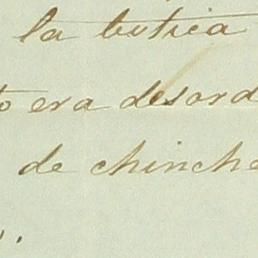 la botica
o era desord
de chinche